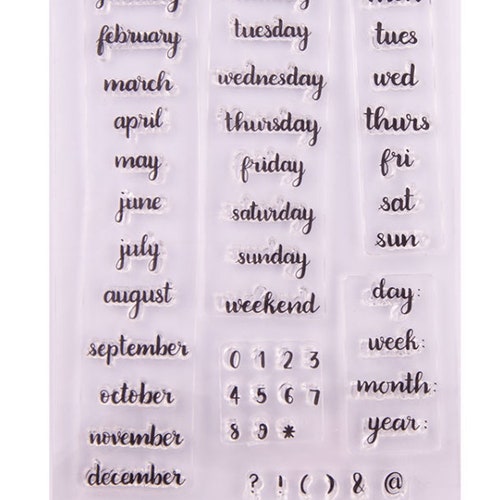 february
march
april
may
june
july
august
september
october
november
december
tuesday
wednesday
thursday
friday
saturday
sunday
weekend
0 1 2 3
4 5 6 7
8 9 *
tues
wed
thurs
fri
sat
sun
day:
week:
month:
year:
? ! ( ) & @